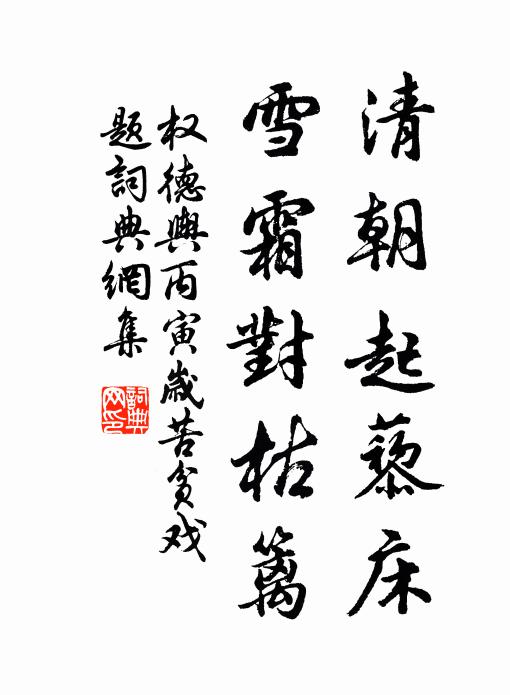 清朝起藜床
雪霜對枯篱
权德輿丙寅歲苦貧戏
題詞典網集
詞典网印